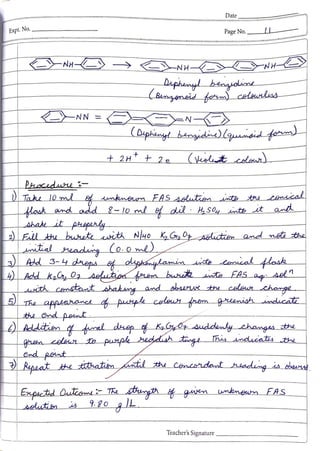 Date
Expt. No.
Page No. 11
NH → NH NH
Diphenyl benzidine
(Benzonoid form) colourless
NN = = N
(Diphenyl benzidine) (quinoid form)
+ 2H+ + 2e (Violet colour)
Procedure :-
1) Take 10 ml of unknown FAS solution into the conical
flask and add 8-10 ml of dil. H2SO4 into it and
shake it properly
2) Fill the burete with N/40 K2Cr2O7 solution and note the
initial reading (0.0 ml)
3) Add 3-4 drops of diphenylamin into conical flask
4) Add K2Cr2O7 solution from burett into FAS aq. soln
with constant shaking and observe the colour change
5) The appearance of purple colour from greenish indicate
the end point
6) Addition of final drop of K2Cr2O7 suddenly changes the
green colour to purple reddish tinge This indicates the
end point
7) Repeat the titration until the concordant reading is observed
Expected Outcome :- The strength of given unknown FAS
solution is 9.80 g/L
Teacher's Signature